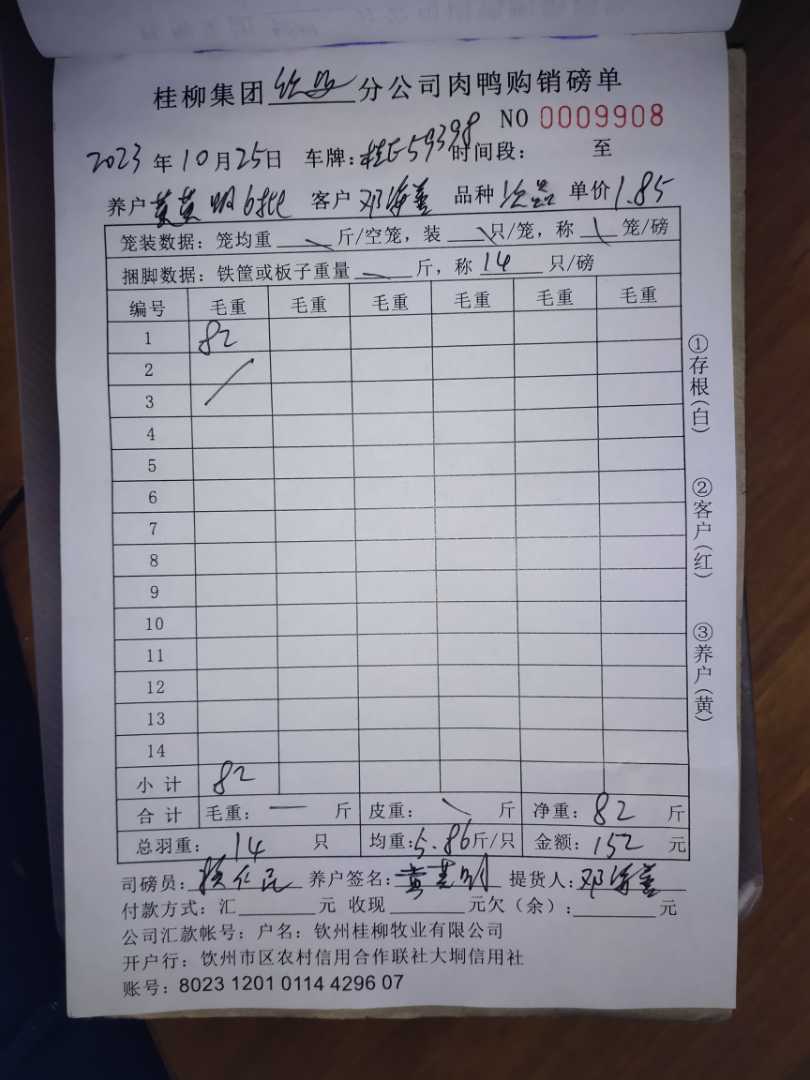 桂柳集团 钦州 分公司肉鸭购销磅单
NO 0009908
2023 年 10 月 25 日 车牌: 桂E59398 时间段: 至
养户 黄英明6批 客户 邓海 品种 次品 单价 1.85
笼装数据: 笼均重 斤/空笼, 装 只/笼, 称 笼/磅
捆脚数据: 铁筐或板子重量 斤, 称 14 只/磅
编号 毛重 毛重 毛重 毛重 毛重 毛重
1 82
2
3
4
5
6
7
8
9
10
11
12
13
14
小计 82
合计 毛重: — 斤 皮重: \ 斤 净重: 82 斤
总羽重: 14 只 均重: 5.86 斤/只 金额: 152 元
司磅员: 养户签名: 黄英明 提货人: 邓海
付款方式: 汇 元 收现 元欠(余): 元
公司汇款帐号: 户名: 钦州桂柳牧业有限公司
开户行: 饮州市区农村信用合作联社大垌信用社
账号: 8023 1201 0114 4296 07
①存根(白)
②客户(红)
③养户(黄)